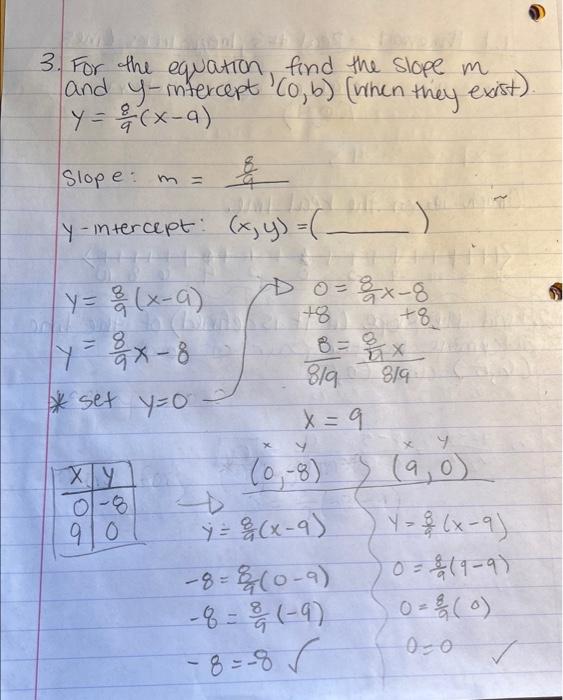 3. For the equation, find the slope m
and y-intercept (0,b) (when they exist).
y = 8/9 (x-9)
Slope: m = 8/9
y-intercept: (x,y) = (______)
y = 8/9 (x-9)
y = 8/9 x - 8
* set y=0
0 = 8/9 x - 8
+8 +8
8 = 8/9 x
8/9 8/9
x = 9
x y
0 -8
9 0
x y x y
(0,-8) (9,0)
y = 8/9 (x-9)
-8 = 8/9 (0-9)
-8 = 8/9 (-9)
-8 = -8 ✓
y = 8/9 (x-9)
0 = 8/9 (9-9)
0 = 8/9 (0)
0=0 ✓